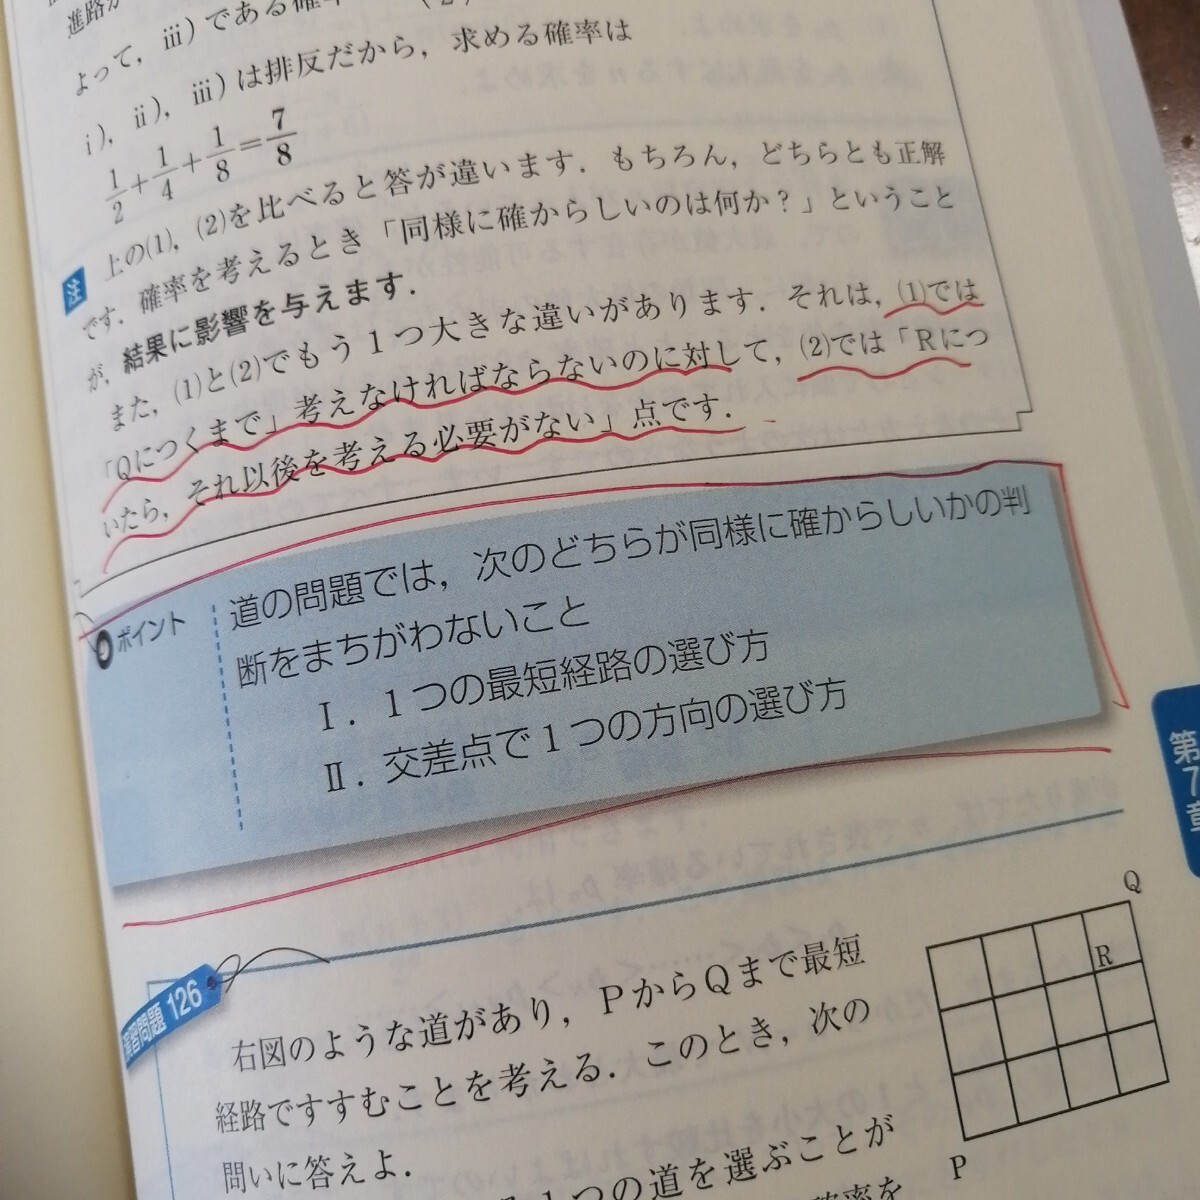 よって，ⅲ)である確率
ⅰ)，ⅱ)，ⅲ)は排反だから，求める確率は
1/2+1/4+1/8=7/8
注 上の(1)，(2)を比べると答が違います．もちろん，どちらとも正解
です．確率を考えるとき「同様に確からしいのは何か？」ということ
が，結果に影響を与えます．
また，(1)と(2)でもう１つ大きな違いがあります．それは，(1)では
「Qにつくまで」考えなければならないのに対して，(2)では「Rにつ
いたら，それ以後を考える必要がない」点です．
ポイント
道の問題では，次のどちらが同様に確からしいかの判
断をまちがわないこと
Ⅰ．１つの最短経路の選び方
Ⅱ．交差点で１つの方向の選び方
第7章
演習問題 126
右図のような道があり，PからQまで最短
経路ですすむことを考える．このとき，次の
問いに答えよ．
１つの道を選ぶことが
確率を
Q
R
P